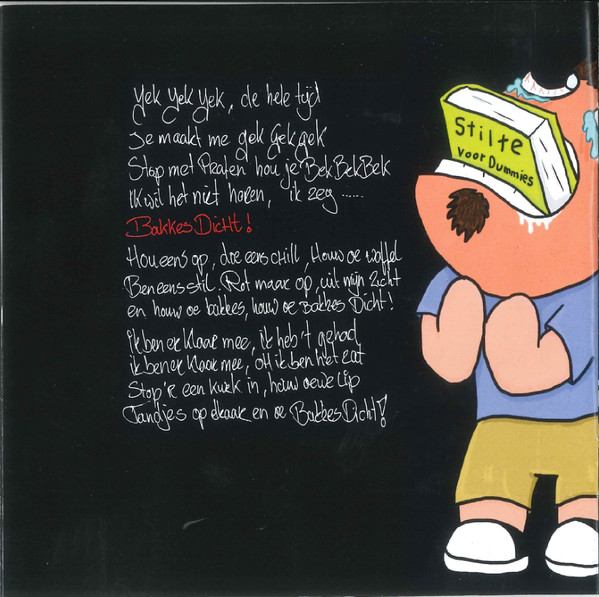 Yek Yek Yek, de hele tijd
Je maakt me gek gek gek
Stop met Praten hou je BekBekBek
IK wil het niet horen, ik zeg ......
Bakkes Dicht!
Hou eens op, doe eens chill, Houw oe waffel
Ben eens stil. Rot maar op, uit mijn Zicht
en houw oe bakkes, houw oe Bakkes Dicht!
Ik ben er klaar mee, ik heb't gehad
ik ben er klaar mee, oH ik ben het zat
Stop'r een kurk in, houw oewe Lip
Tandjes op elkaar en oe BakkesDicht!
Stilte
voor Dummies